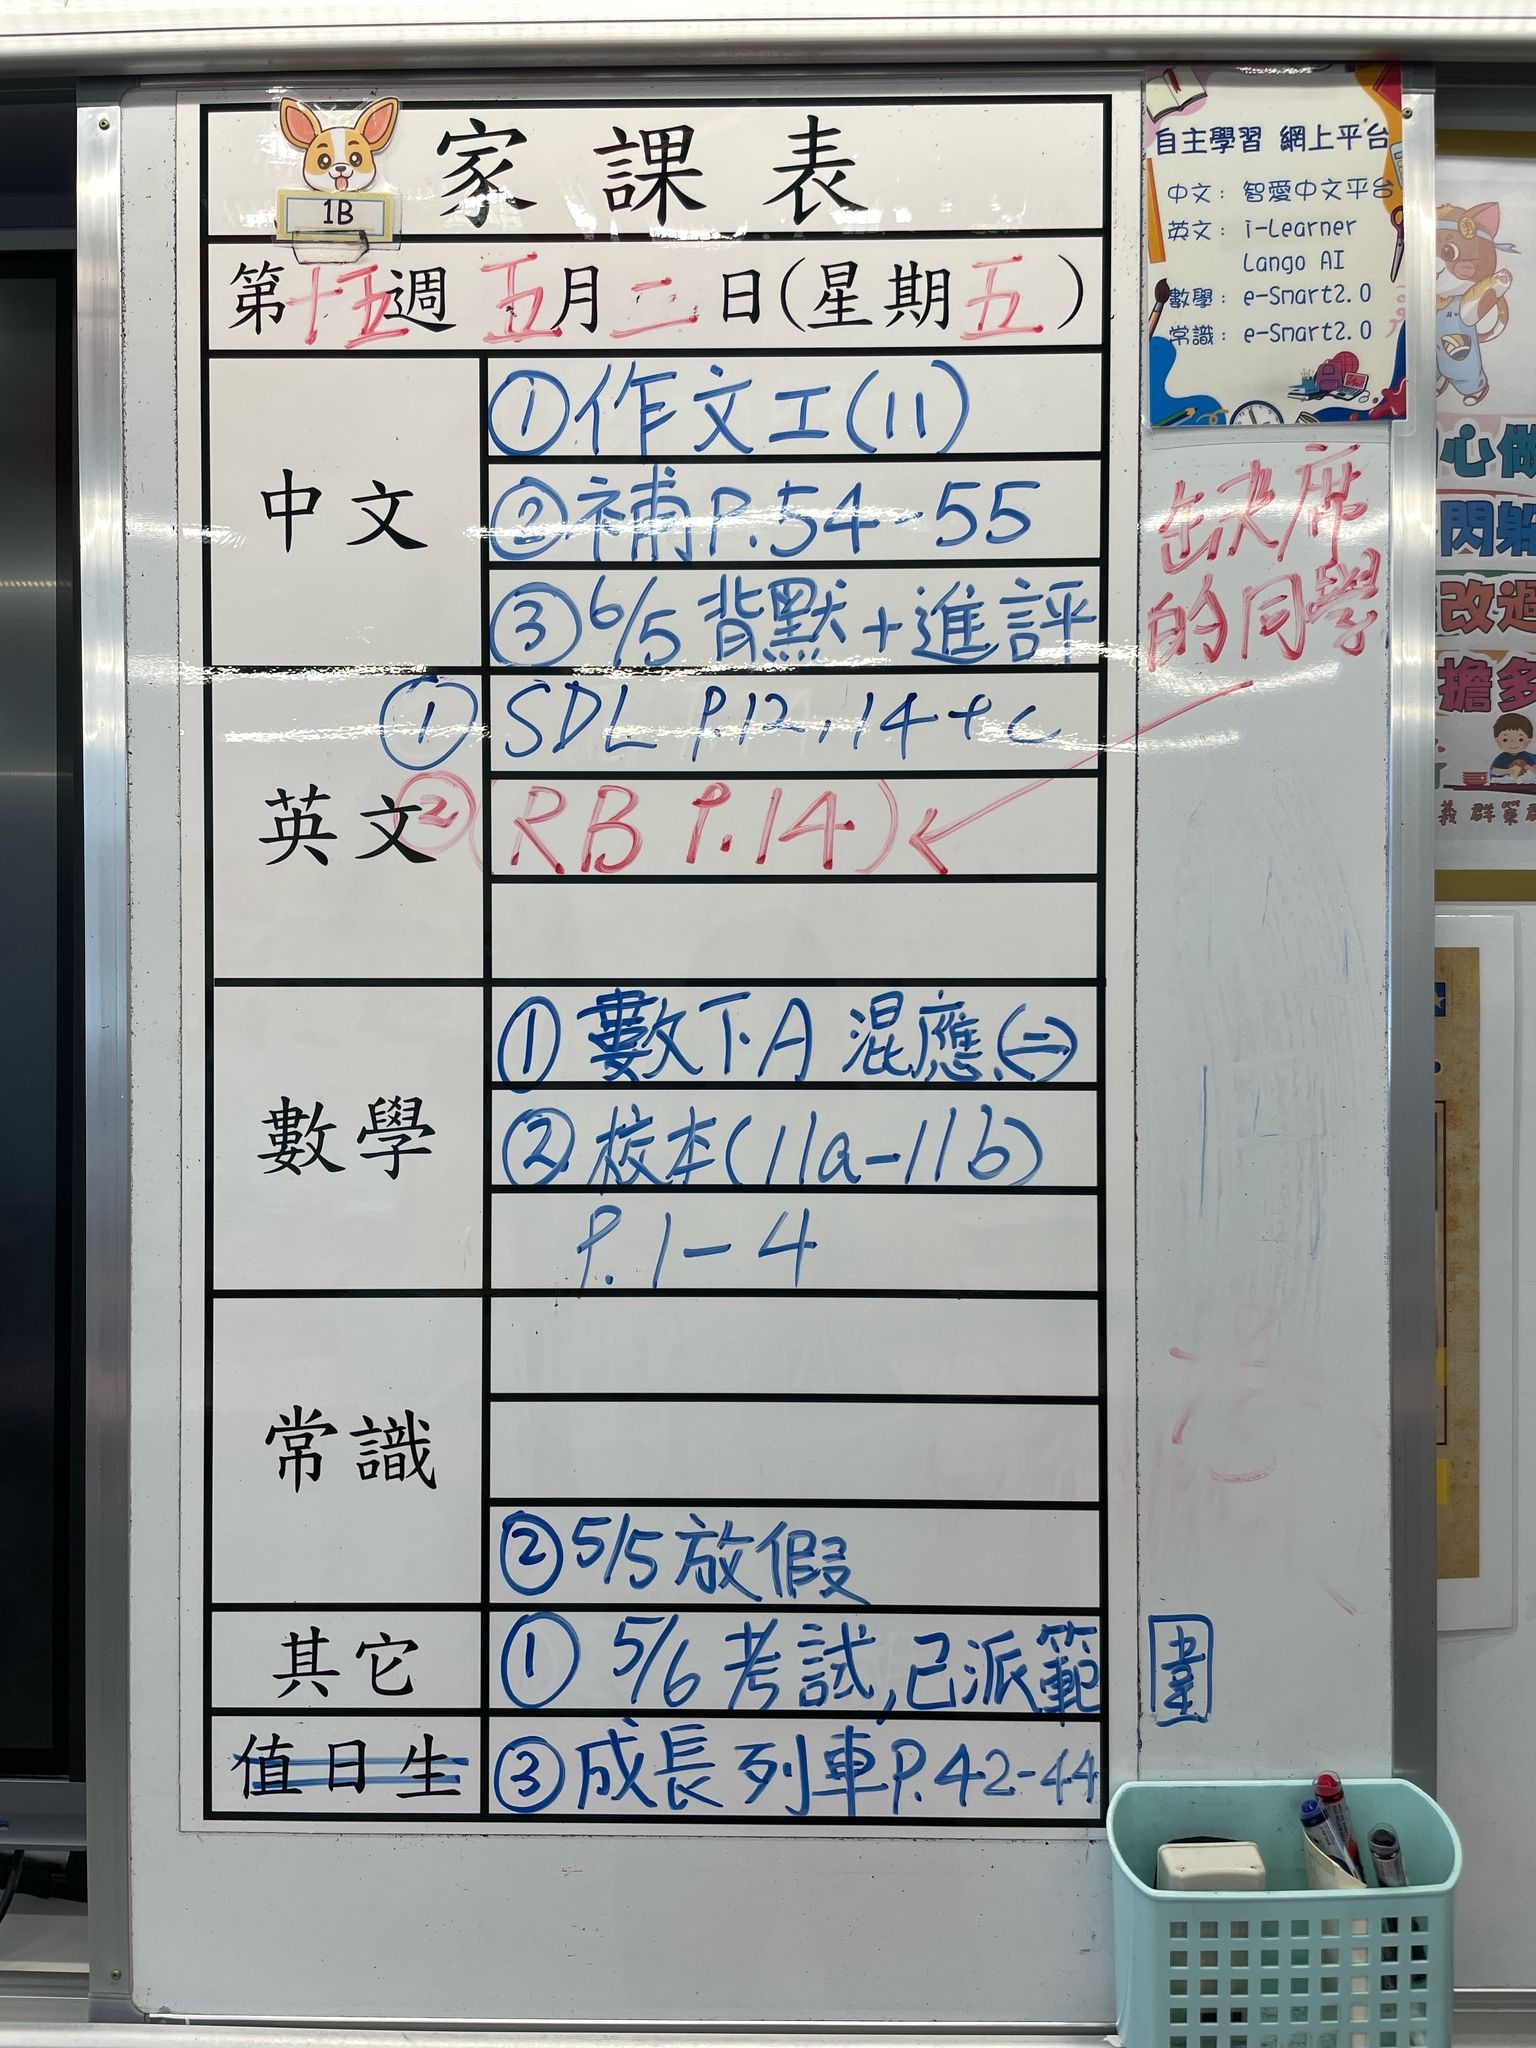 家課表
1B
第十五週 五月二日(星期五)
中文
①作文工(11)
②補P.54-55
③6/5背默+進評
英文
① SDL P.12,14+c
②(RB P.14)
數學
①數下A 混應(二)
②校本(11a-11b)
P.1-4
常識
②5/5放假
其它
① 5/6考試,已派範圍
值日生
③成長列車P.42-44
自主學習 網上平台
中文: 智愛中文平台
英文: i-Learner
Lango AI
數學: e-Smart2.0
常識: e-Smart2.0
缺席
的同學
心做
閃躲
改過
擔多
義群策群